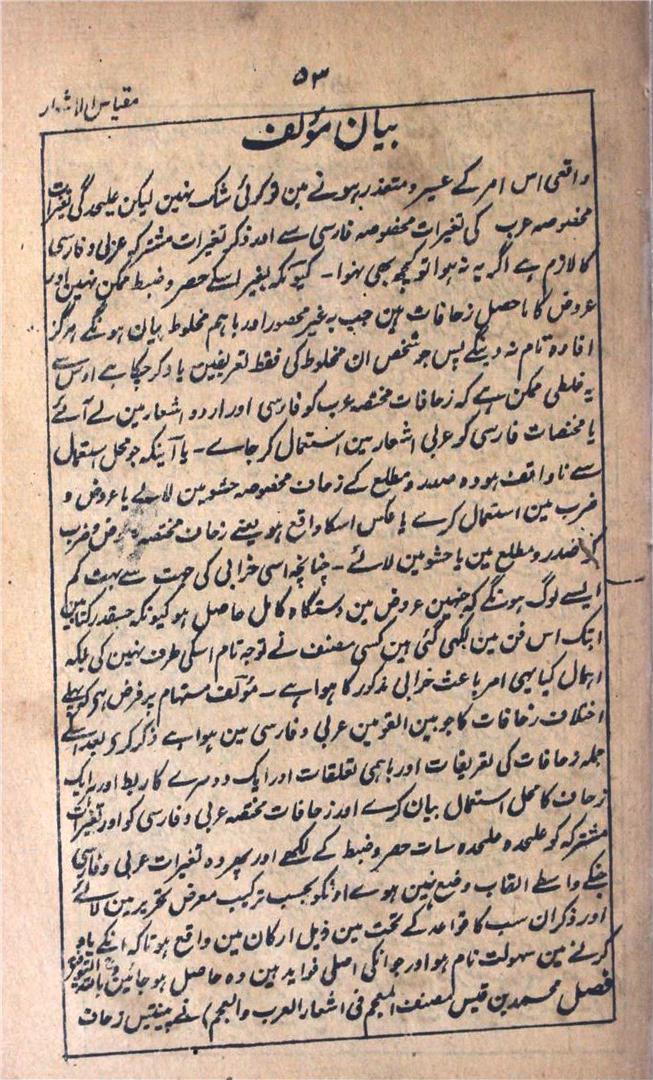 ۵۳
مقیاس الاشعار
بیان مؤلف
واقعی اس امر کے عسیر و متعذر ہونے مین تو کوئی شک نہین لیکن علیحدگی تغیرات
مخصوصہ عرب کی تغیرات مخصوصہ فارسی سے اور ذکر تغیرات مشترکہ عربی و فارسی
کا لازم ہے اگر یہ نہ ہوا تو کچھ بھی نہوا - کیونکہ بغیر اسکے حصر و ضبط ممکن نہین اور
عروض کا ماحصل زحافات ہین جب یہ غیر محصور اور باہم مخلوط بیان ہونگے ہرگز
افادہ تام نہ دینگے پس جو شخص ان مخلوط کی فقط تعریفین یاد کر چکا ہے اوس سے
یہ غلطی ممکن ہے کہ زحافات مختصہ عرب کو فارسی اور اردو اشعار مین لے آئے
یا مختصات فارسی کو عربی اشعار مین استعمال کر جاے - یا آینکہ جو محل استعمال
سے ناواقف ہو وہ صدر و مطلع کے زحاف مخصوصہ حشو مین لائے یا عروض و
ضرب مین استعمال کرے یا عکس اسکا واقع ہو یعنے زحاف مختصہ عروض و ضرب
کو صدر و مطلع مین یا حشو مین لائے - چنانچہ اسی خرابی کی جہت سے بہت کم
ایسے لوگ ہونگے کہ جنہین عروض مین دستگاہ کامل حاصل ہو کیونکہ جسقدر کتابین
ابتک اس فن مین لکھی گئی ہین کسی مصنف نے توجہ تام اسکی طرف نہین کی بلکہ
اہمال کیا یہی امر باعث خرابی مذکور کا ہوا ہے - مؤلف مستہام پر فرض ہی کہ پہلے
اختلاف زحافات کا جو بین القومین عربی و فارسی مین ہوا ہے ذکر کرے بعد اسکے
جملہ زحافات کی تعریفات اور باہمی تعلقات اور ایک دوسرے کا ربط اور ہر ایک
زحاف کا محل استعمال بیان کرے اور زحافات مختصہ عربی و فارسی کو اور تغیرات
مشترکہ کو علیحدہ علیحدہ سات حصر و ضبط کے لکھے اور پھر وہ تغیرات عربی و فارسی
جنکے واسطے القاب وضع نہین ہوے اونکو بحسب ترکیب معرض تحریر مین لائے
اور ذکر ان سب کا قواعد کے تحت مین ذیل ارکان مین واقع ہو تاکہ انکے یاد
کرنے مین سہولت تام ہو اور جو انکی اصلی فواید ہین وہ حاصل ہو جائین و باللہ التوفیق
فصل محمد بن قیس مصنف المعجم فی اشعار العرب والعجم) نے پینتیس زحاف